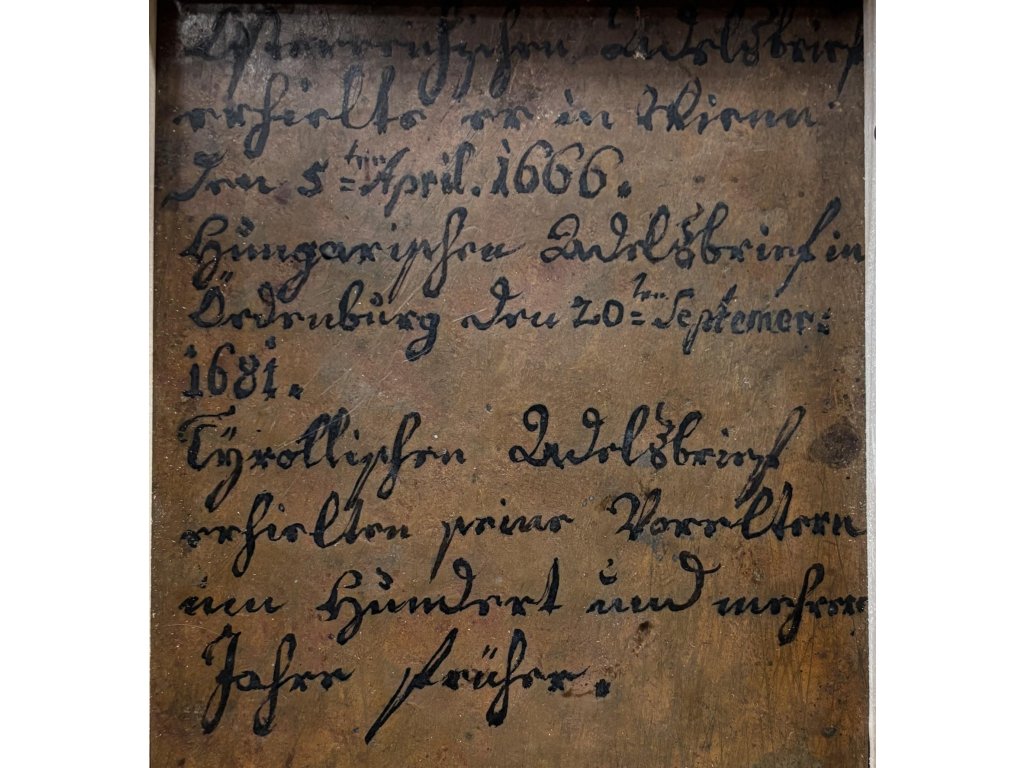 Östereichischen Adelsbrief
erhielte er in Wienn
den 5=ten April. 1666.
Hungarischen Adelsbrief in
Öedenburg den 20=ten Septemer:
1681.
Tÿrollischen Adelsbrief
erhielten seine Vorreltern
um Hundert und mehrere
Jahre früher.